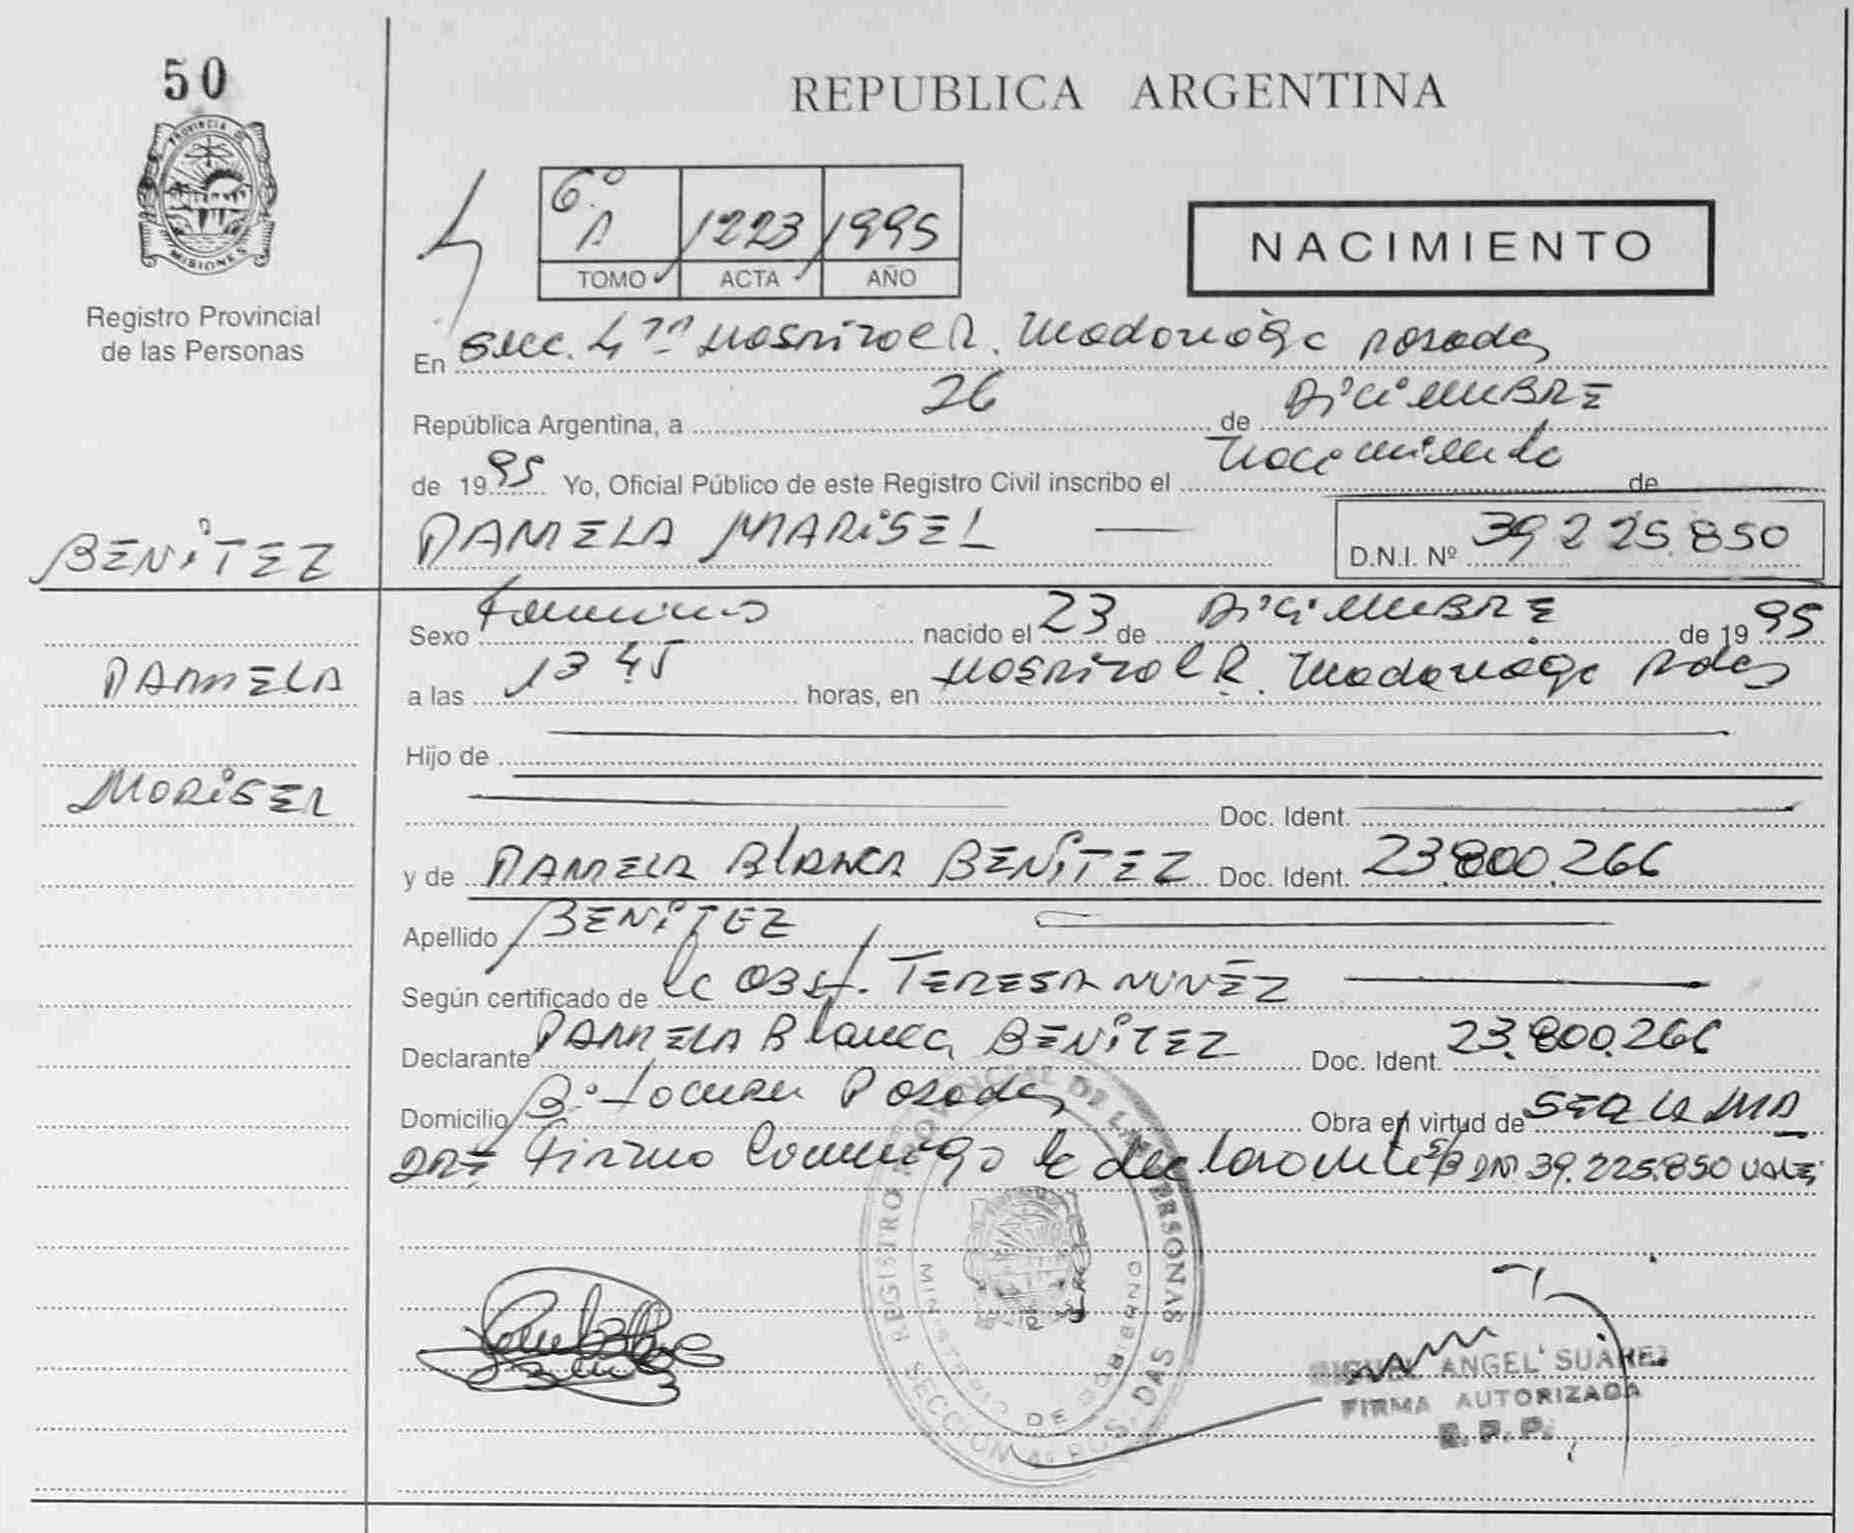 50
REPUBLICA ARGENTINA
PROVINCIA DE
MISIONES
Registro Provincial
de las Personas
6º A 1223 1995
TOMO ACTA AÑO
NACIMIENTO
En Secc. 4ta Hospital R. Madariaga Posadas
República Argentina, a 26 de DiciemBRE
de 1995 Yo, Oficial Público de este Registro Civil inscribo el Nacimiento de
BENiTEZ
PAMELA MARiSEL D.N.I. Nº 39.225.850
Sexo Femenino nacido el 23 de DiciemBRE de 1995
PAMELA
a las 13 45 horas, en Hospital R. Madariaga Pdas
Hijo de
MARiSEL
Doc. Ident.
y de PAMELA BlANCA BENiTEZ Doc. Ident. 23.800.266
Apellido BENiTEZ
Según certificado de la OBst. TERESA NUÑEZ
Declarante PAMELA Blanca BENiTEZ Doc. Ident. 23.800.266
Domicilio Bº Posadas Obra en virtud de SER LA MA
DRE Firma Conmigo la declarante S/B DNI. 39.225.850 VALE
REGISTRO PROVINCIAL DE LAS PERSONAS
MINISTERIO DE GOBIERNO
SECCION 4º POSADAS
MIGUEL ANGEL SUAREZ
FIRMA AUTORIZADA
R. P. P.